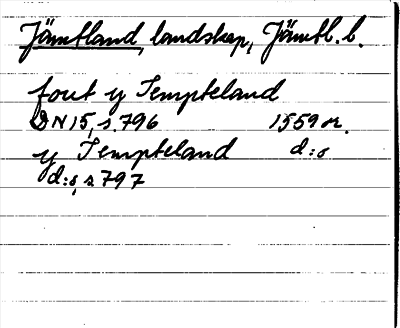 Jämtland, landskap, Jämtl. l.
fout y Tempteland
DN 15, s. 796 1559 or.
y Tempteland d:o
d:o, s 797